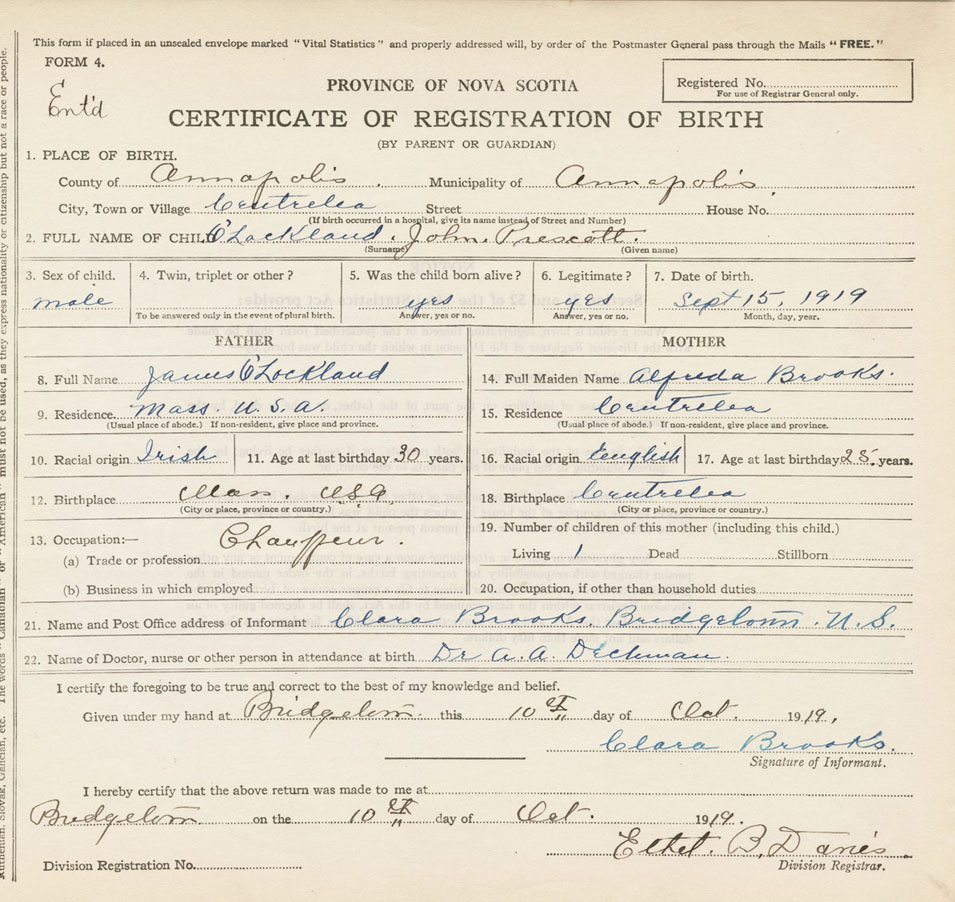 This form if placed in an unsealed envelope marked "Vital Statistics" and properly addressed will, by order of the Postmaster General pass through the Mails "FREE."
FORM 4.
Ent'd
PROVINCE OF NOVA SCOTIA
Registered No.
For use of Registrar General only.
CERTIFICATE OF REGISTRATION OF BIRTH
(BY PARENT OR GUARDIAN)
1. PLACE OF BIRTH.
County of Annapolis. Municipality of Annapolis.
City, Town or Village Centrelea Street House No.
(If birth occurred in a hospital, give its name instead of Street and Number)
2. FULL NAME OF CHILD O'Lockland. John. Prescott.
(Surname) (Given name)
3. Sex of child. 4. Twin, triplet or other? 5. Was the child born alive? 6. Legitimate? 7. Date of birth.
male yes yes Sept 15, 1919
To be answered only in the event of plural birth. Answer, yes or no. Answer, yes or no. Month, day, year.
FATHER MOTHER
8. Full Name James O'Lockland 14. Full Maiden Name Alfreda Brooks.
9. Residence Mass. U.S.A. 15. Residence Centrelea
(Usual place of abode.) If non-resident, give place and province. (Usual place of abode.) If non-resident, give place and province.
10. Racial origin Irish 11. Age at last birthday 30 years. 16. Racial origin English 17. Age at last birthday 25 years.
12. Birthplace Mass. USA 18. Birthplace Centrelea
(City or place, province or country.) (City or place, province or country.)
13. Occupation:— Chauffeur. 19. Number of children of this mother (including this child.)
(a) Trade or profession Living 1 Dead Stillborn
(b) Business in which employed 20. Occupation, if other than household duties
21. Name and Post Office address of Informant Clara Brooks. Bridgetown. N.S.
22. Name of Doctor, nurse or other person in attendance at birth Dr A. A. Dechman.
I certify the foregoing to be true and correct to the best of my knowledge and belief.
Given under my hand at Bridgetown this 10th day of Oct. 1919.
Clara Brooks.
Signature of Informant.
I hereby certify that the above return was made to me at
Bridgetown on the 10th day of Oct. 1919.
Ethel. B. Davies
Division Registration No. Division Registrar.